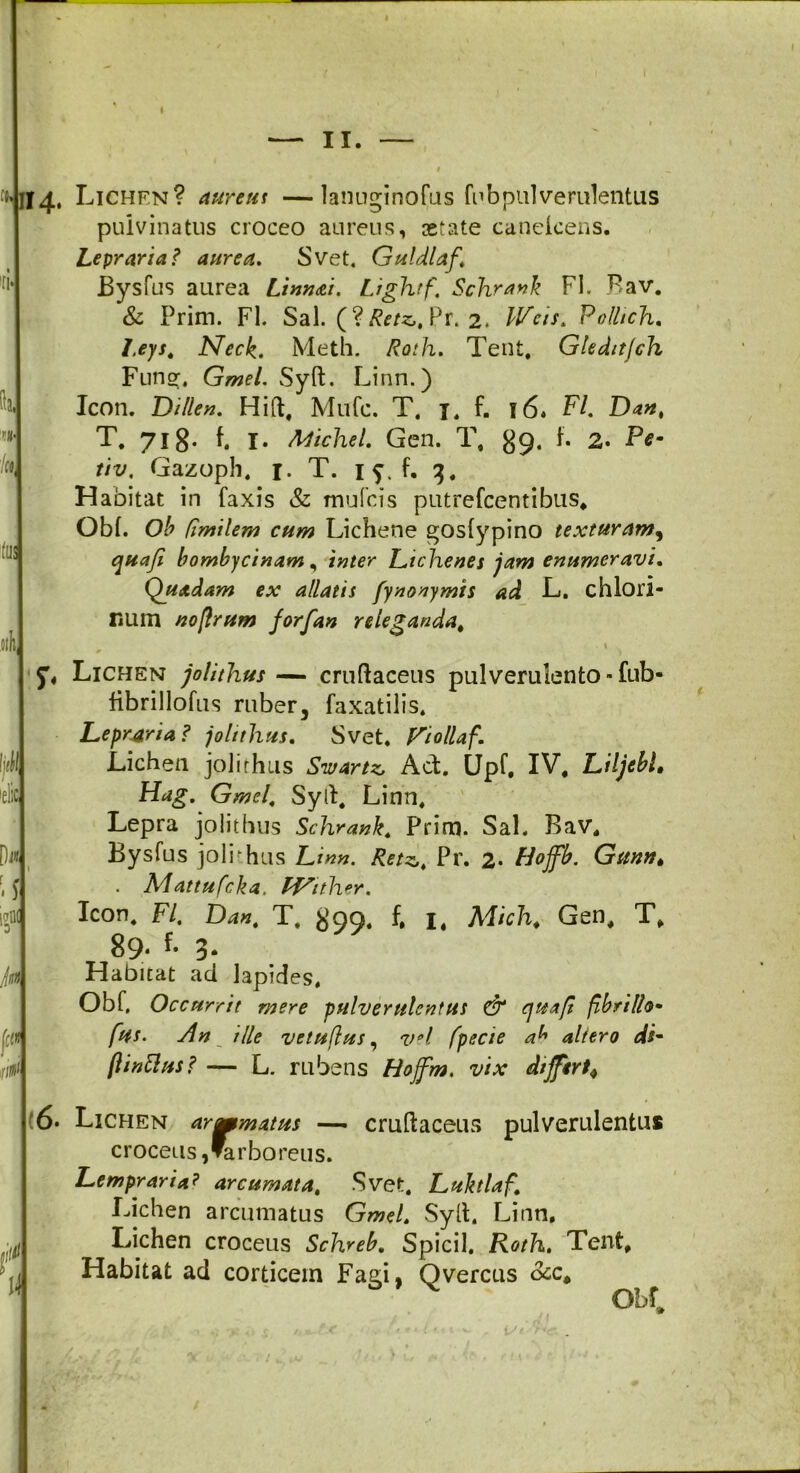 — II. —
14. LICHEN? aureus — lanuginofus fubpulverulentus
pulvinatus croceo aureus, ætate canefcens.
Lepraria? aurea. Svet. Guldlaf.
Bysfus aurea Linnæi. Lightf. Schrank Fl. Bav.
& Prim. Fl. Sal. (? Retz. Pr. 2. Weis. Pollich.
Leys. Neck. Meth. Roth. Tent. Gleditfch
Fung. Gmel. Syft. Linn.)
Icon. Dillen. Hift. Mufc. T. 1. f. 16. Fl. Dan.
T. 718. f. 1. Michel. Gen. T. 89. f. 2. Pe-
tiv. Gazoph. 1. T. 15. f. 3.
Habitat in faxis & mufcis putrefcentibus.
Obf. Ob fimilem cum Lichene gosfypino texturam,
quafi bombycinam, inter Lichenes jam enumeravi.
Quædam ex allatis fynonymis ad L. chlori-
num noftrum forfan releganda.
5. LICHEN jolithus — cruftaceus pulverulento-fub-
fibrillofus ruber, faxatilis.
Lepraria? jolithus. Svet. Viollaf.
Lichen jolithus Swartz Act. Upf. IV. Liljebl.
Hag. Gmel. Syft. Linn.
Lepra jolithus Schrank. Prim. Sal. Bav.
Bysfus jolithus Linn. Retz. Pr. 2. Hoffb. Gunn.
. Mattufcka. Wither.
Icon. Fl. Dan. T. 899. f. 1. Mich. Gen. T.
89. f. 3.
Habitat ad lapides.
Obf. Occurrit mere pulverulentus & quafi fibrillo-
fus. An ille vetuftus, vel fpecie ab altero di-
ftinctus? — L. rubens Hoffm. vix differt.
6. LICHEN matus — cruftaceus pulverulentus
croceus, arboreus.
Lempraria? arcumata. Svet. Luktlaf.
Lichen arcumatus Gmel. Syft. Linn.
Lichen croceus Schreb. Spicil. Roth. Tent.
Habitat ad corticem Fagi, Qvercus &c.
Obf.